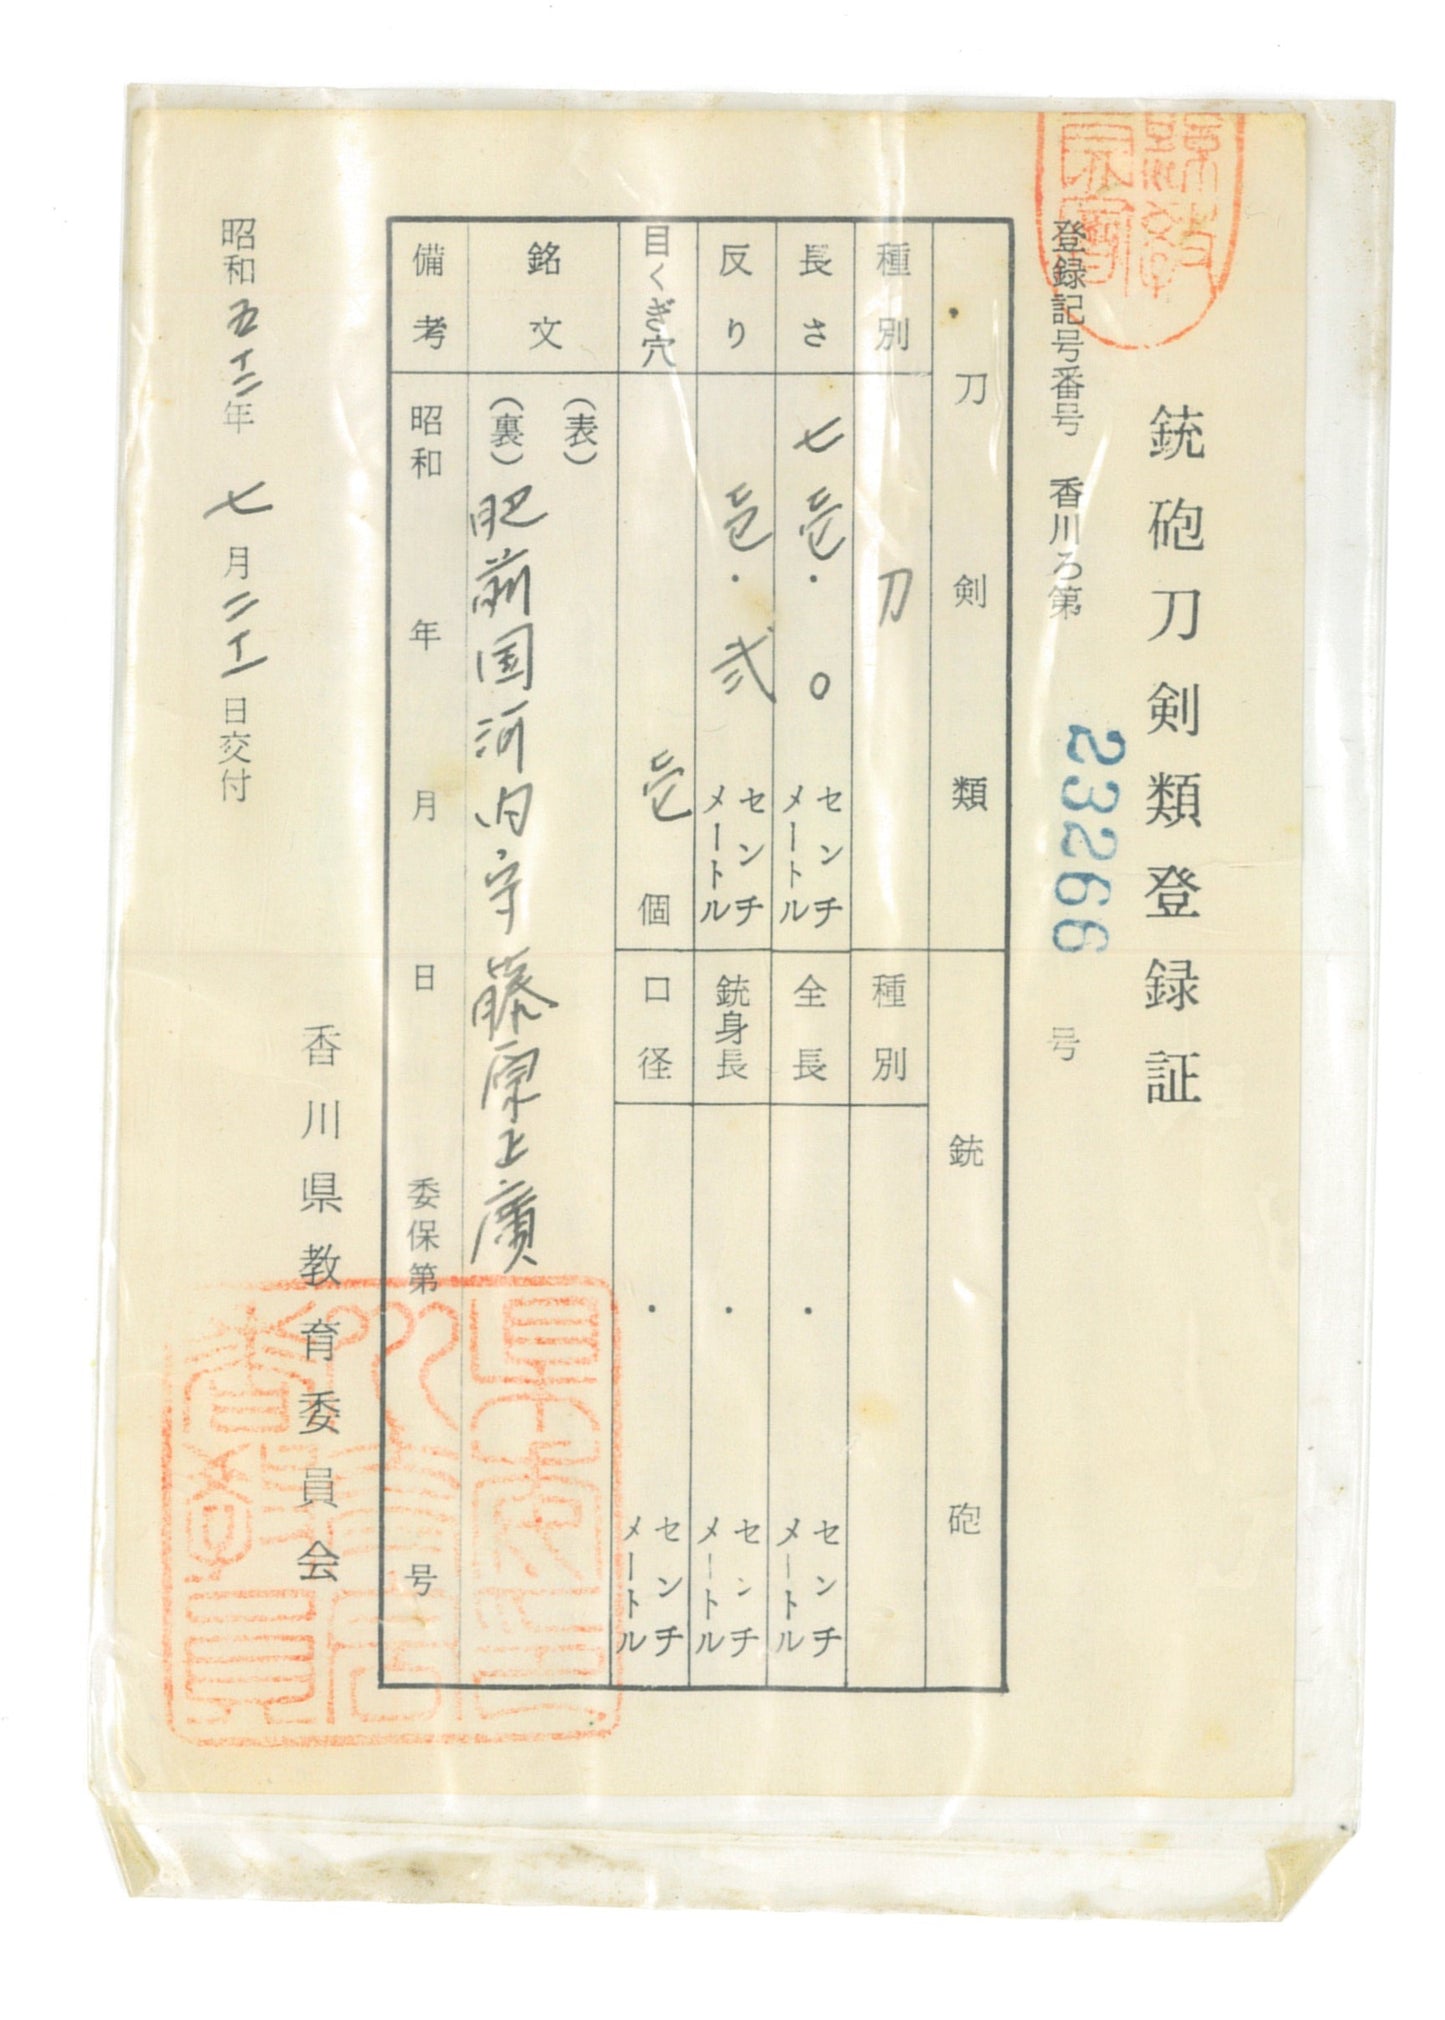 銃砲刀剣類登録証
登録記号番号 香川ろ第 23266 号
刀剣類
種別 刀
長さ 七壱.0 センチメートル
反り 壱.弐 センチメートル
目くぎ穴 壱個
銘文
(表)
(裏) 肥前国河内守藤原正廣
備考 昭和 年 月 日 委保第 号
銃砲
種別
全長 . センチメートル
銃身長 . センチメートル
口径 . センチメートル
香川県教育委員会
年 七月二十一日交付